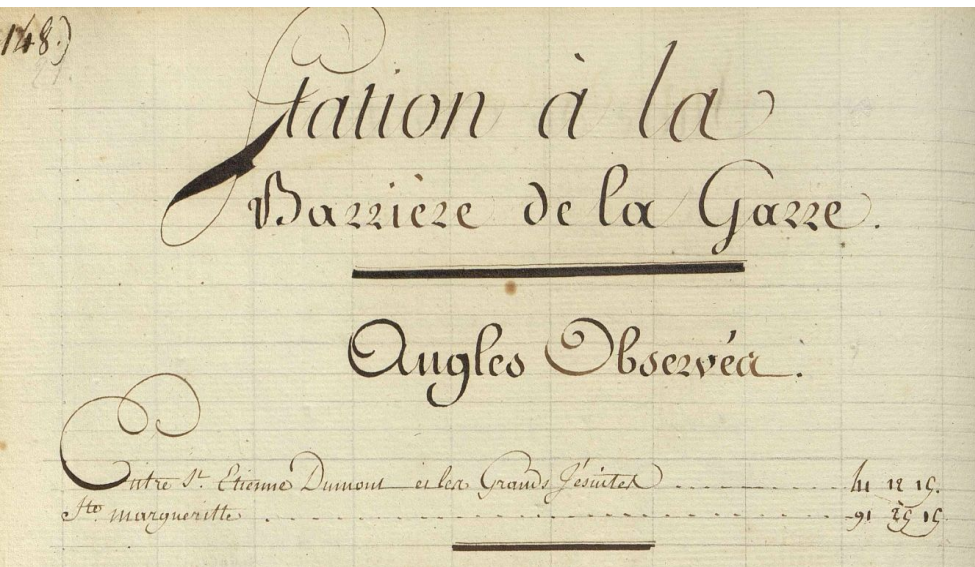 148.)
Station à la
Barrière de la Garre.
Angles Observés.
Entre St. Etienne Dumont et les Grands Jésuites
Ste. margueritte